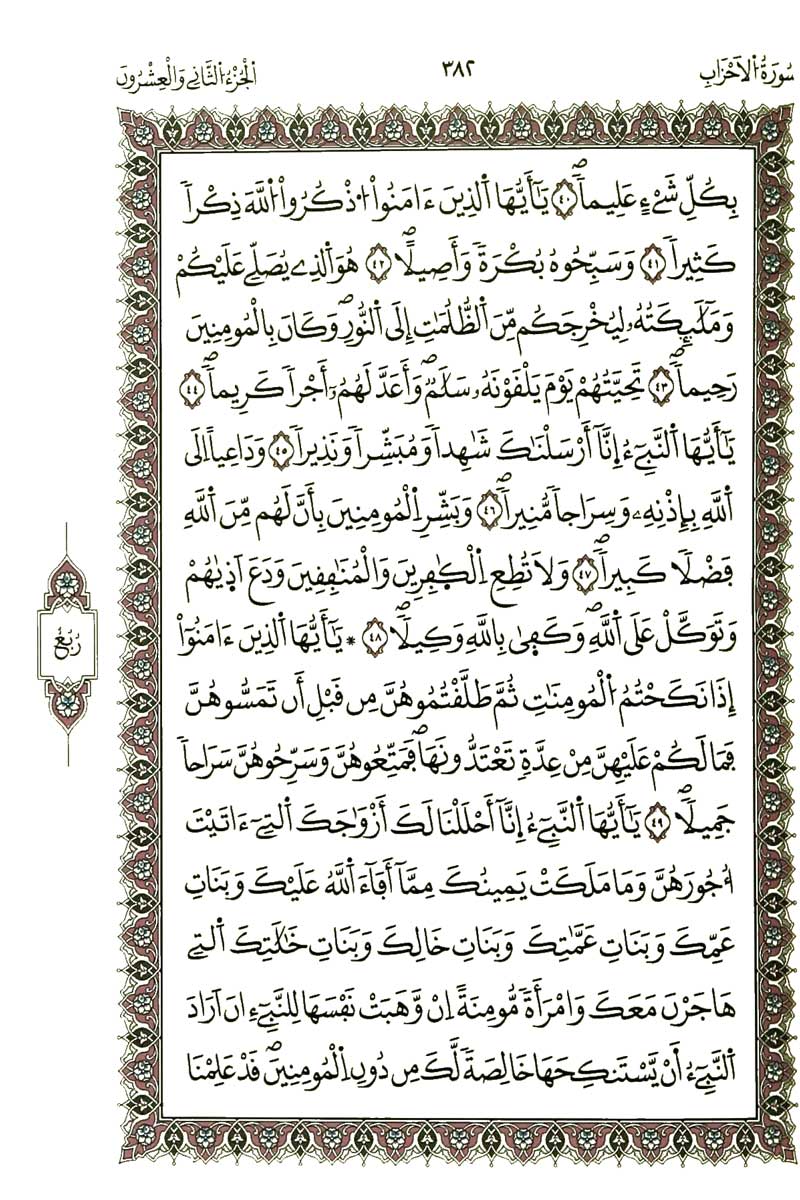 سُورَةُ الْأَحْزَابِ
٣٨٢
الْجُزْءُ الثَّانِي وَالْعِشْرُونَ
بِكُلِّ شَےْءٍ عَلِيماٗۖ ٤٠ يَٰٓأَيُّهَا اَ۬لذِينَ ءَامَنُواْ اُ۟ذْكُرُواْ اُ۬للَّهَ ذِكْراٗ
كَثِيراٗ ٤١ وَسَبِّحُوهُ بُكْرَةٗ وَأَصِيلاًۖ ٤٢ هُوَ اَ۬لذِے يُصَلِّے عَلَيْكُمْ
وَمَلَٰٓئِكَتُهُۥ لِيُخْرِجَكُم مِّنَ اَ۬لظُّلُمَٰتِ إِلَى اَ۬لنُّورِۖ وَكَانَ بِالْمُومِنِينَ
رَحِيماٗۖ ٤٣ تَحِيَّتُهُمْ يَوْمَ يَلْقَوْنَهُۥ سَلَٰمٞۖ وَأَعَدَّ لَهُمُۥٓ أَجْراٗ كَرِيماٗۖ ٤٤
يَٰٓأَيُّهَا اَ۬لنَّبِےٓءُ انَّآ أَرْسَلْنَٰكَ شَٰهِداٗ وَمُبَشِّراٗ وَنَذِيراٗ ٤٥ وَدَاعِياً اِلَى
اَ۬للَّهِ بِإِذْنِهِۦ وَسِرَاجاٗ مُّنِيراٗۖ ٤٦ وَبَشِّرِ اِ۬لْمُومِنِينَ بِأَنَّ لَهُم مِّنَ اَ۬للَّهِ
فَضْلاٗ كَبِيراٗۖ ٤٧ وَلَا تُطِعِ اِ۬لْكٰ۪فِرِينَ وَالْمُنَٰفِقِينَ وَدَعَ اَذ۪يٰهُمْ
وَتَوَكَّلْ عَلَى اَ۬للَّهِۖ وَكَف۪يٰ بِاللَّهِ وَكِيلاٗۖ ٤٨ ۞ يَٰٓأَيُّهَا اَ۬لذِينَ ءَامَنُوٓاْ
إِذَا نَكَحْتُمُ اُ۬لْمُومِنَٰتِ ثُمَّ طَلَّقْتُمُوهُنَّ مِن قَبْلِ أَن تَمَسُّوهُنَّ
فَمَا لَكُمْ عَلَيْهِنَّ مِنْ عِدَّةٖ تَعْتَدُّونَهَاۖ فَمَتِّعُوهُنَّ وَسَرِّحُوهُنَّ سَرَاحاٗ
جَمِيلاٗۖ ٤٩ يَٰٓأَيُّهَا اَ۬لنَّبِےٓءُ انَّآ أَحْلَلْنَا لَكَ أَزْوَٰجَكَ اَ۬لتِےٓ ءَاتَيْتَ
أُجُورَهُنَّ وَمَا مَلَكَتْ يَمِينُكَ مِمَّآ أَفَآءَ اَ۬للَّهُ عَلَيْكَ وَبَنَاتِ
عَمِّكَ وَبَنَاتِ عَمَّٰتِكَ وَبَنَاتِ خَالِكَ وَبَنَاتِ خَٰلَٰتِكَ اَ۬لتِے
هَاجَرْنَ مَعَكَ وَامْرَأَةٗ مُّومِنَةً اِنْ وَّهَبَتْ نَفْسَهَا لِلنَّبِےٓءِ انَ اَرَادَ
اَ۬لنَّبِےٓءُ أَنْ يَّسْتَنكِحَهَا خَالِصَةٗ لَّكَ مِن دُونِ اِ۬لْمُومِنِينَۖ قَدْ عَلِمْنَا
رُبُعُ